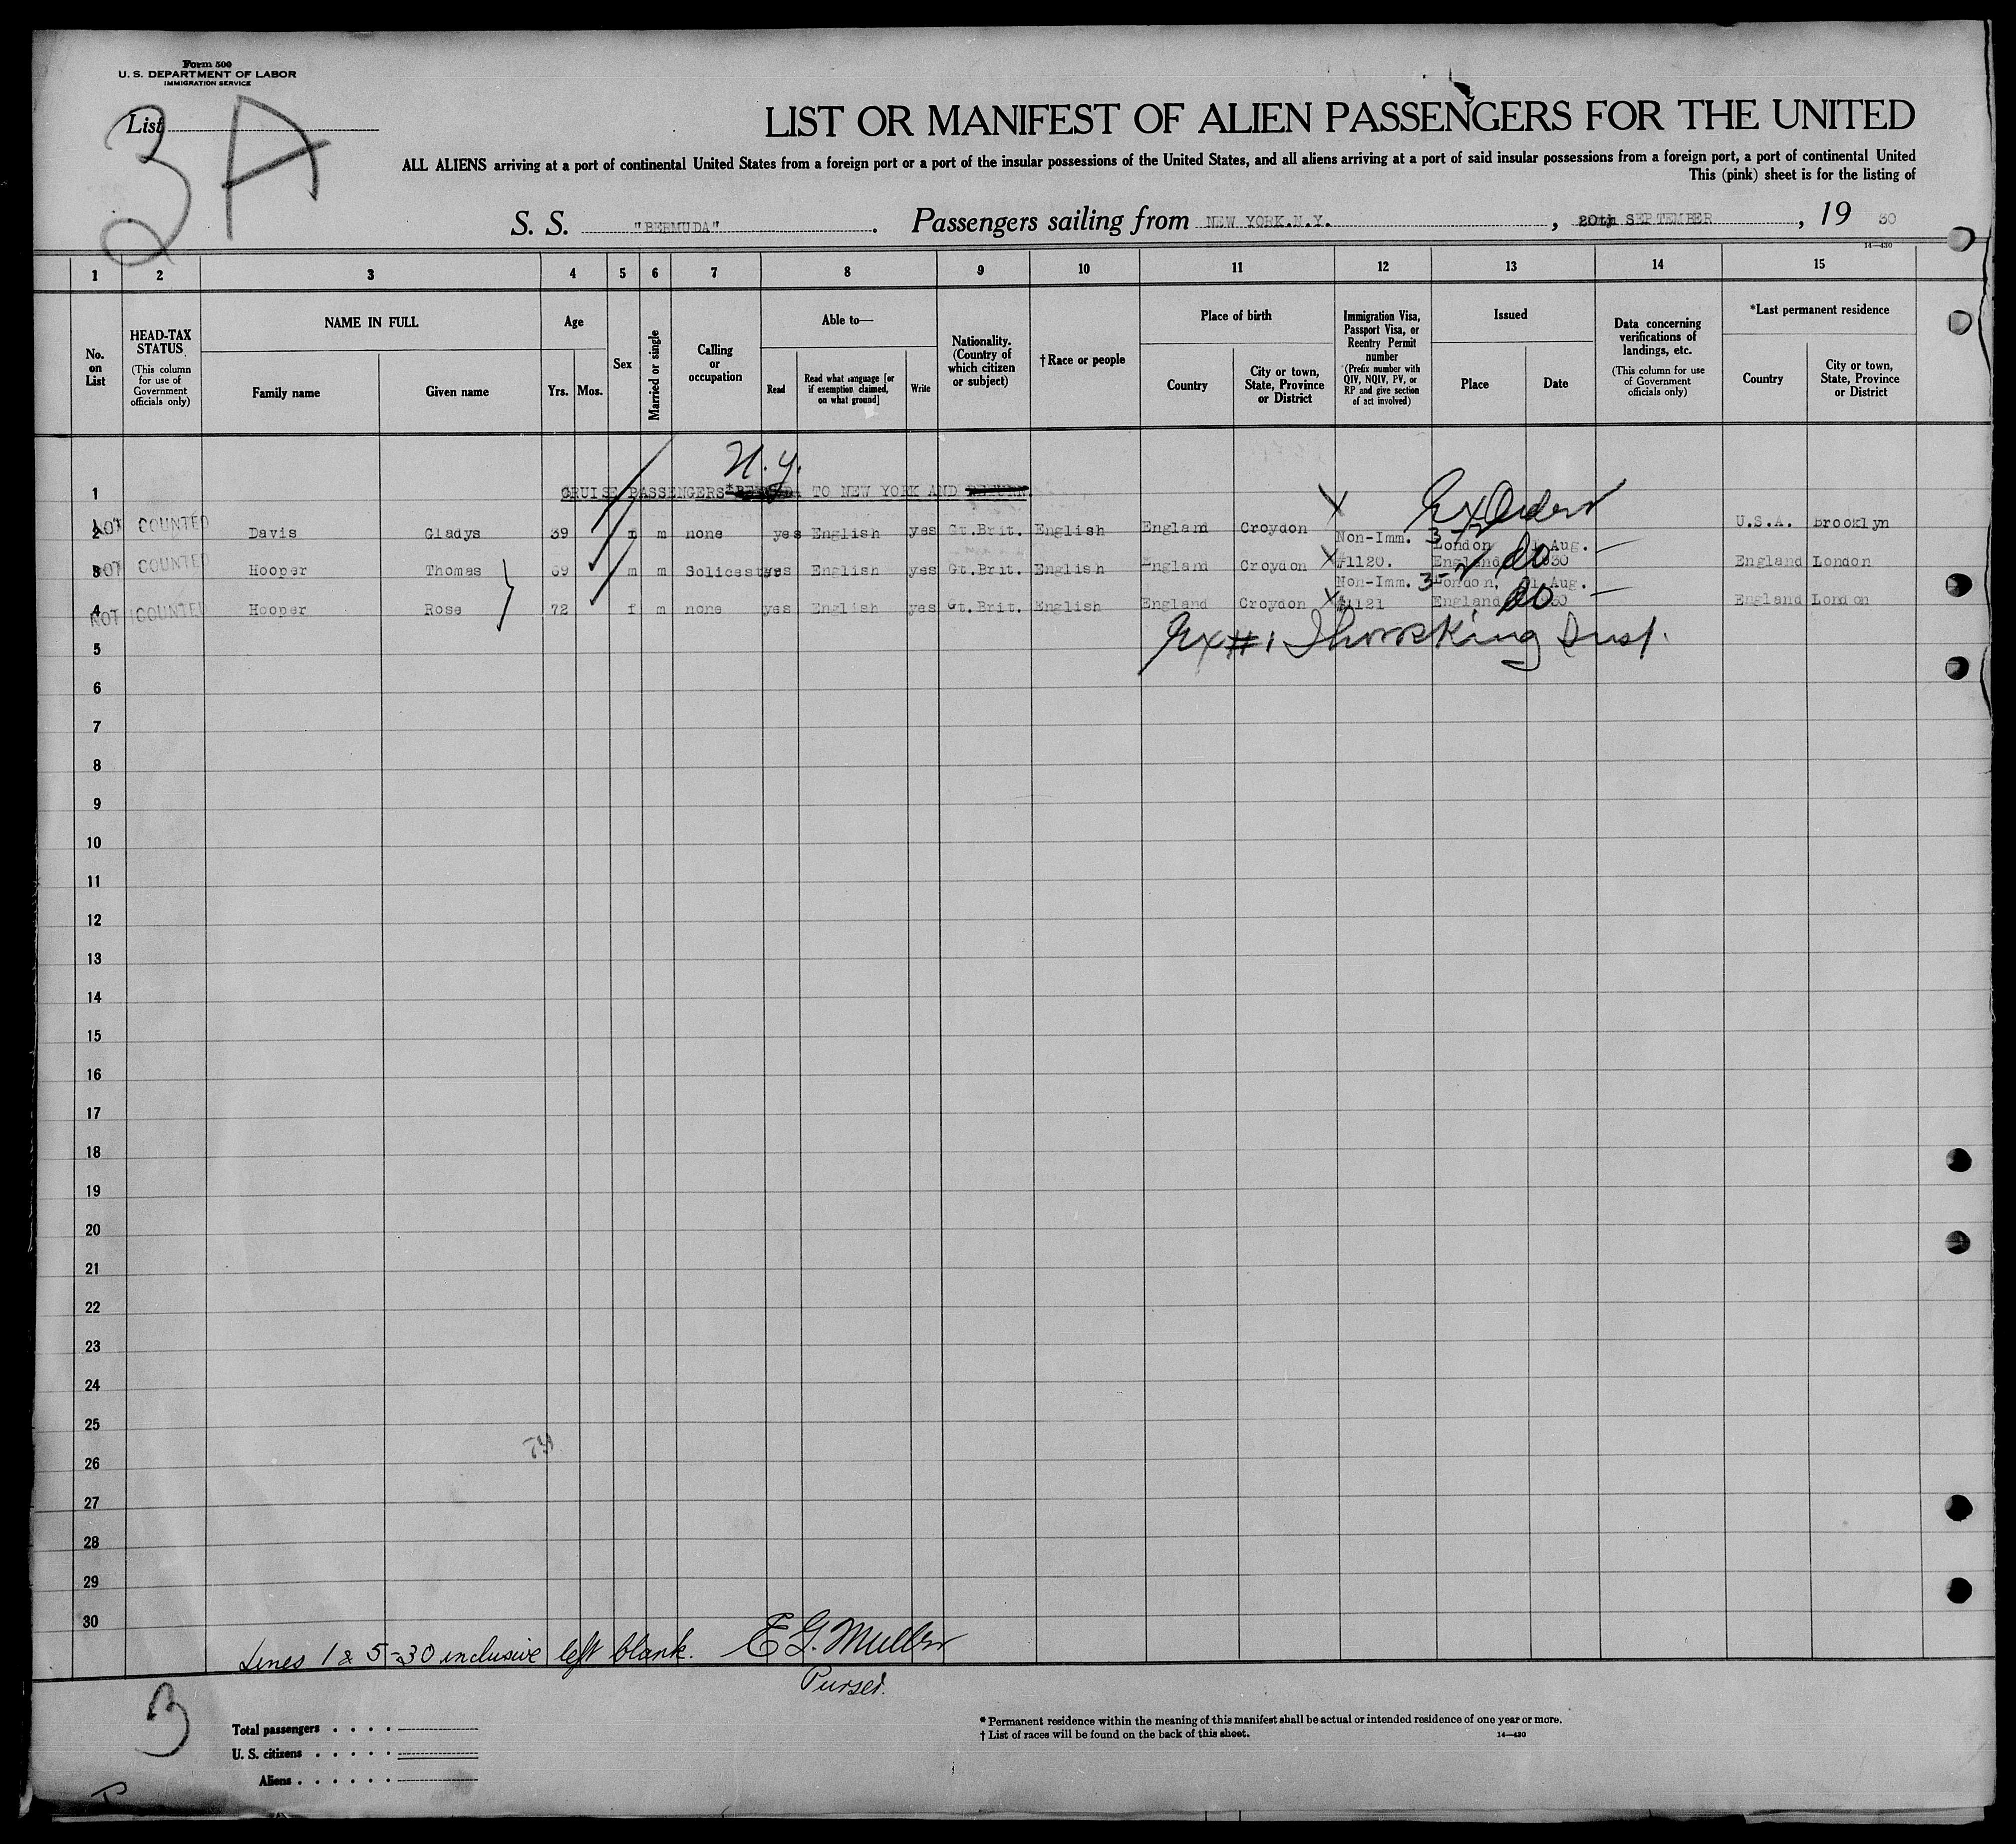 Form 500
U. S. DEPARTMENT OF LABOR
IMMIGRATION SERVICE
List
3A
LIST OR MANIFEST OF ALIEN PASSENGERS FOR THE UNITED
ALL ALIENS arriving at a port of continental United States from a foreign port or a port of the insular possessions of the United States, and all aliens arriving at a port of said insular possessions from a foreign port, a port of continental United
This (pink) sheet is for the listing of
S. S. "BERMUDA". Passengers sailing from NEW YORK.N.Y., 20th SEPTEMBER, 19 30
14—430
1 2 3 4 5 6 7 8 9 10 11 12 13 14 15
No. on List
HEAD-TAX STATUS
(This column for use of Government officials only)
NAME IN FULL
Family name
Given name
Age
Yrs. Mos.
Sex
Married or single
Calling or occupation
Able to—
Read
Read what language [or if exemption claimed, on what ground]
Write
Nationality. (Country of which citizen or subject)
†Race or people
Place of birth
Country
City or town, State, Province or District
Immigration Visa, Passport Visa, or Reentry Permit number
(Prefix number with QIV, NQIV, PV, or RP and give section of act involved)
Issued
Place
Date
Data concerning verifications of landings, etc.
(This column for use of Government officials only)
*Last permanent residence
Country
City or town, State, Province or District
N.Y.
1 CRUISE PASSENGERS TO NEW YORK AND RETURN
2 NOT COUNTED Davis Gladys 39 m none yes English yes Gt.Brit. English England Croydon U.S.A. Brooklyn
Non-Imm. 3-2 London Aug.
3 NOT COUNTED Hooper Thomas 69 m m Solicester yes English yes Gt.Brit. English England Croydon #1120. England do 1930 England London
Non-Imm. 3-2 London, Aug.
4 NOT COUNTED Hooper Rose 72 f m none yes English yes Gt.Brit. English England Croydon #1121 England do 1930 England London
Ex #1 Insp.
5
6
7
8
9
10
11
12
13
14
15
16
17
18
19
20
21
22
23
24
25
26
27
28
29
30
Lines 1 & 5-30 inclusive left blank. E G. Muller
Purser.
3
Total passengers
U. S. citizens
Aliens
* Permanent residence within the meaning of this manifest shall be actual or intended residence of one year or more.
† List of races will be found on the back of this sheet.
14—430